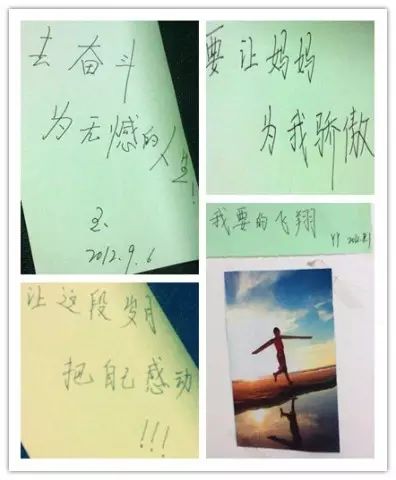 去奋斗
为无憾的人生!
2012.9.6
要让妈妈
为我骄傲
我要的飞翔
YY
让这段岁月
把自己感动
!!!